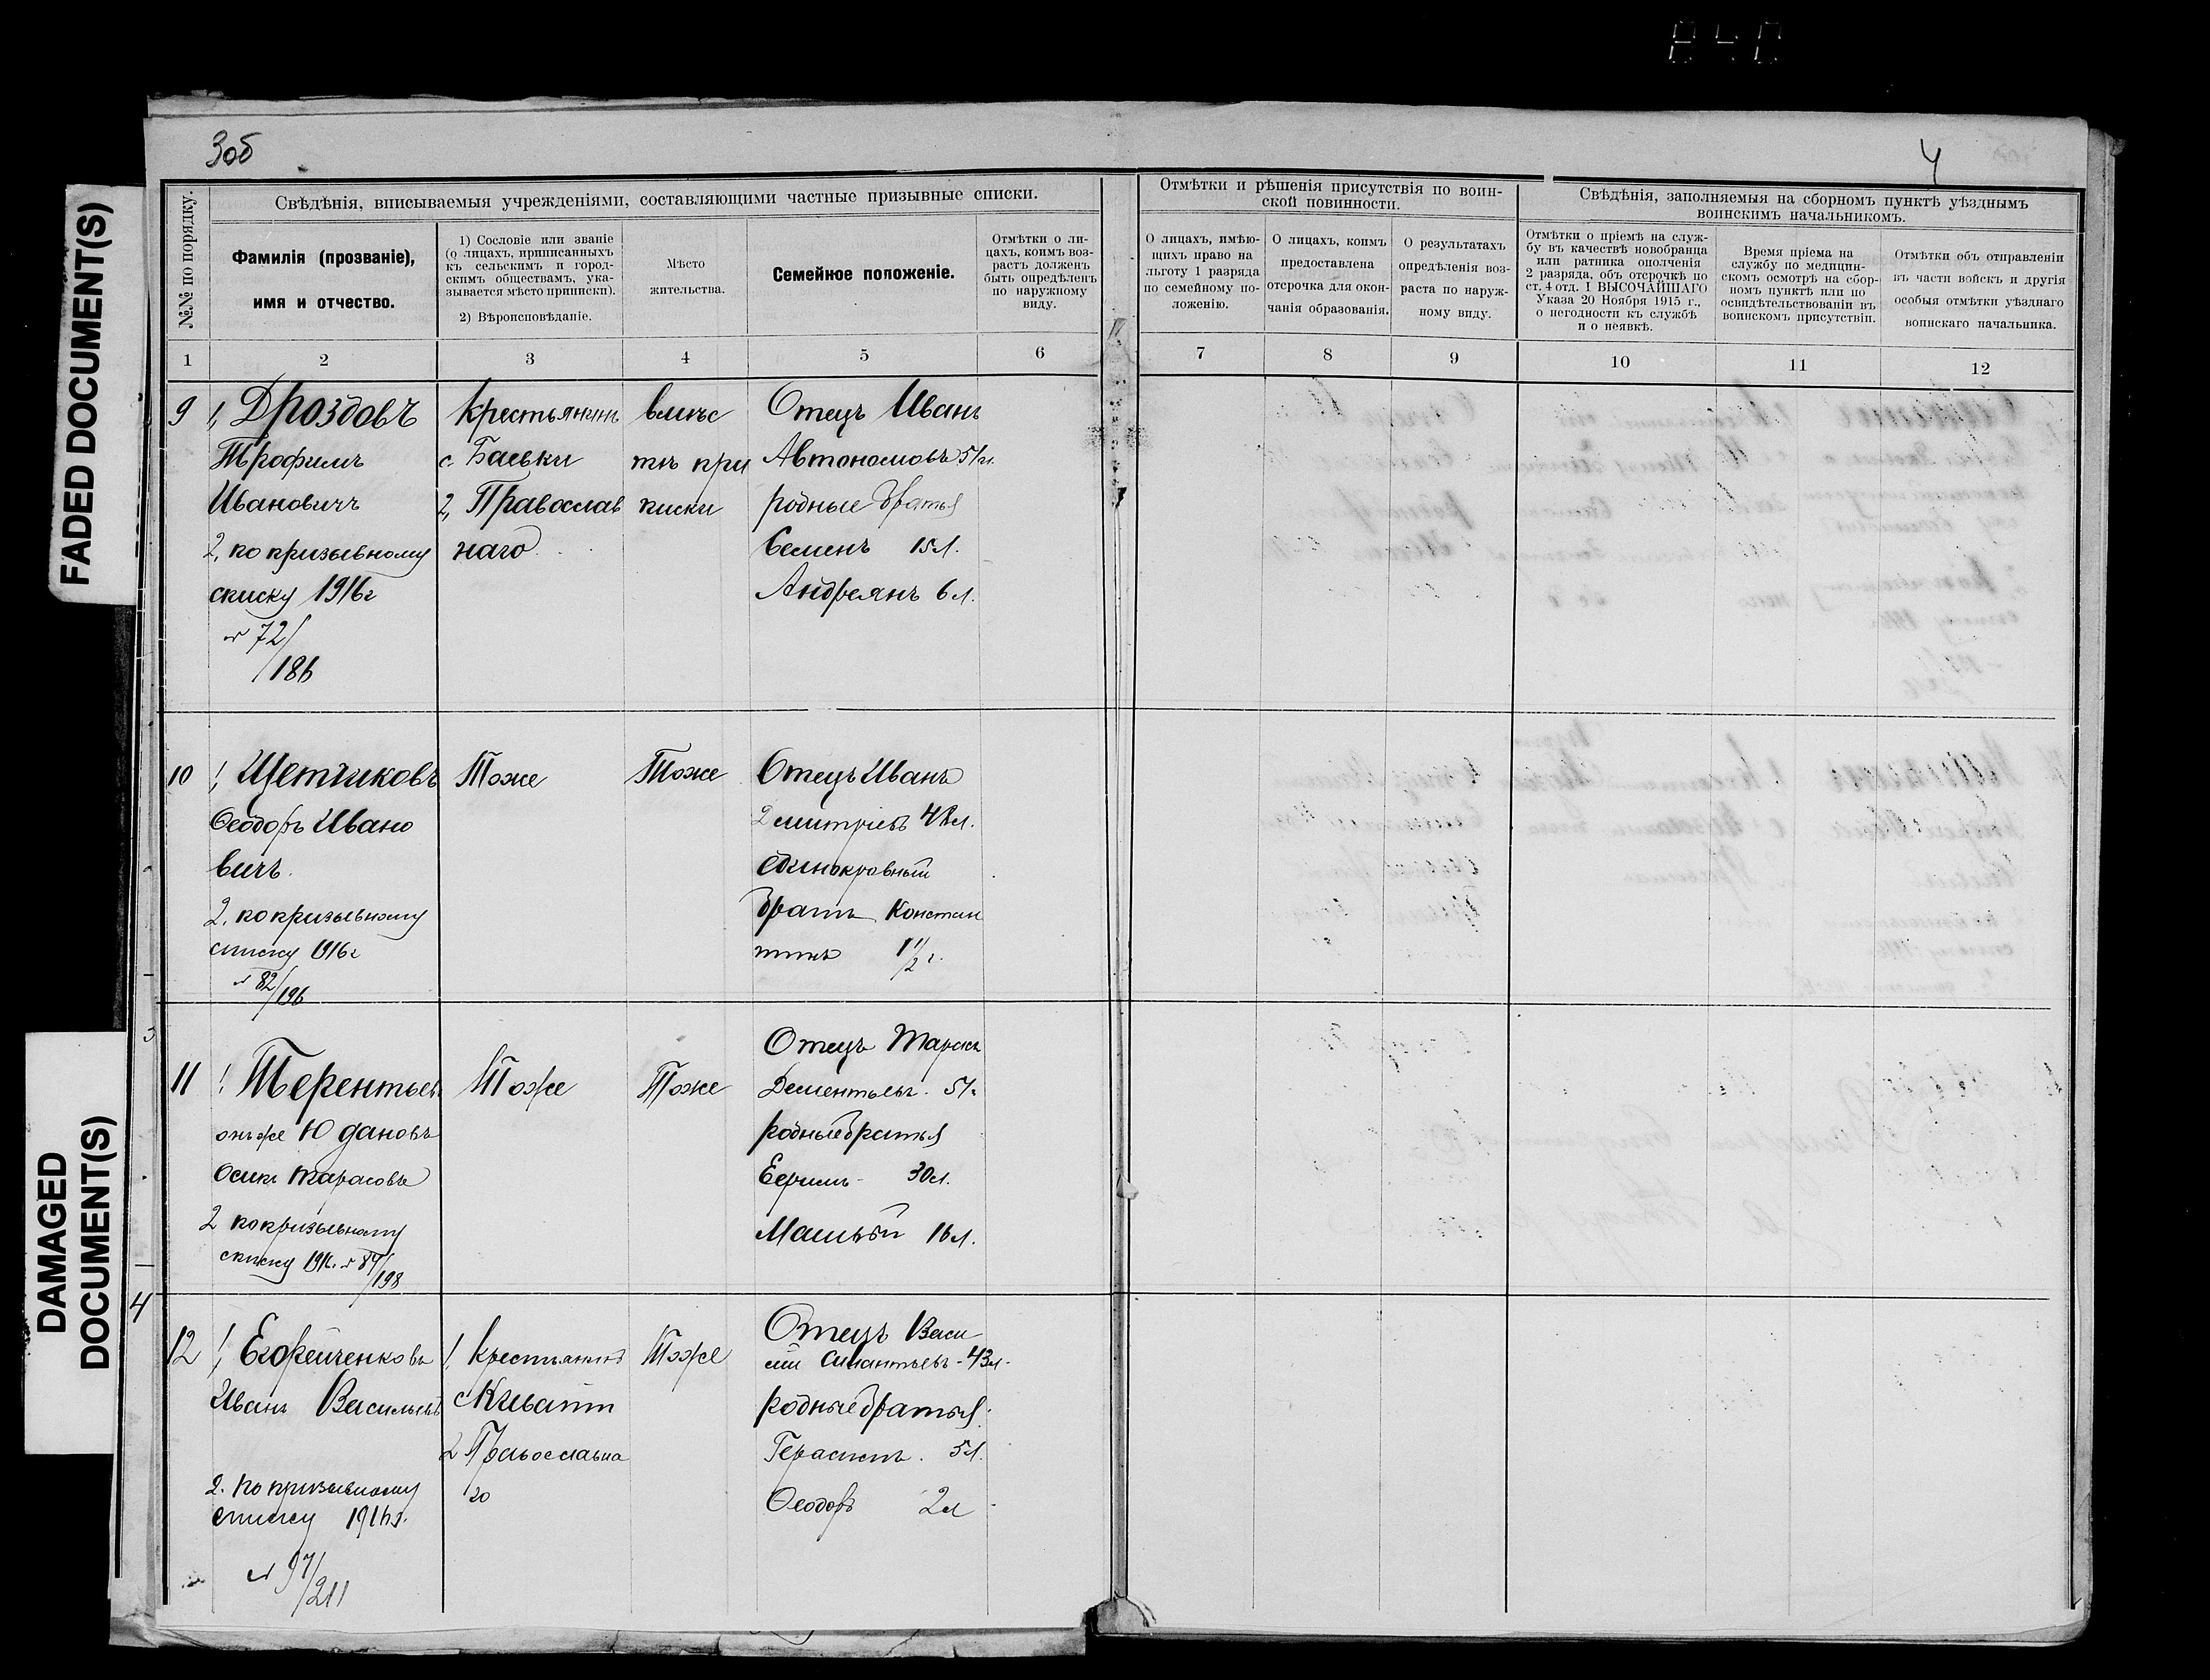 FADED DOCUMENT(S)
DAMAGED
DOCUMENT(S)
3об
4
№№ по порядку.
Свѣдѣнія, вписываемыя учрежденіями, составляющими частные призывные списки.
Фамилія (прозваніе),
имя и отчество.
1) Сословіе или званіе
(о лицахъ, приписанныхъ
къ сельскимъ и город-
скимъ обществамъ, ука-
зывается мѣсто приписки).
2) Вѣроисповѣданіе.
Мѣсто
жительства.
Семейное положеніе.
Отмѣтки о ли-
цахъ, коимъ воз-
растъ долженъ
быть опредѣленъ
по наружному
виду.
Отмѣтки и рѣшенія присутствія по воин-
ской повинности.
О лицахъ, имѣю-
щихъ право на
льготу 1 разряда
по семейному по-
ложенію.
О лицахъ, коимъ
предоставлена
отсрочка для окон-
чанія образованія.
О результатахъ
опредѣленія воз-
раста по наруж-
ному виду.
Свѣдѣнія, заполняемыя на сборномъ пунктѣ уѣзднымъ
воинскимъ начальникомъ.
Отмѣтки о пріемѣ на служ-
бу въ качествѣ новобранца
или ратника ополченія
2 разряда, объ отсрочкѣ по
ст. 4 отд. I ВЫСОЧАЙШАГО
Указа 20 Ноября 1915 г.,
о негодности къ службѣ
и о неявкѣ.
Время пріема на
службу по медицин-
скомъ осмотрѣ на сбор-
номъ пунктѣ или по
освидѣтельствованіи въ
воинскомъ присутствіи.
Отмѣтки объ отправленіи
въ части войскъ и другія
особыя отмѣтки уѣзднаго
воинскаго начальника.
1 2 3 4 5 6 7 8 9 10 11 12
9
1, Дроздовъ
Трофимъ
Ивановичъ
2, по призывному
списку 1916г
№ 72/
/186
Крестьянинъ
с. Баевки
2, Православ
наго
вмѣс
тѣ при
писки
Отецъ Иванъ
Автономовъ 51г.
родные братья
Семенъ 15л.
Андреянъ 6л.
10
1, Щетниковъ
Ѳеодоръ Ивано
вичъ.
2, по призывному
списку 1916г
№ 82/196
Тоже
Тоже
Отецъ Иванъ
Дмитріевъ 48л.
единокровный
братъ Констан
тинъ 1 1/2 г.
11
1, Терентьевъ
онъ же Югановъ
Осипъ Тарасовъ
2 по призывному
списку 1916. № 84/198
Тоже
Тоже
Отецъ Тарасъ
Дементьевъ. 51г
родные братья
30л.
16л.
12
1,
Иванъ Васильевъ
2. по призывному
списку 1916г.
№ 97/
/211
1, Крестьянинъ
с. Кивати
2 Православна
го
Тоже
Отецъ Васи
лій 43л.
родные братья:
Герасимъ. 5л.
Ѳеодоръ 2л
4